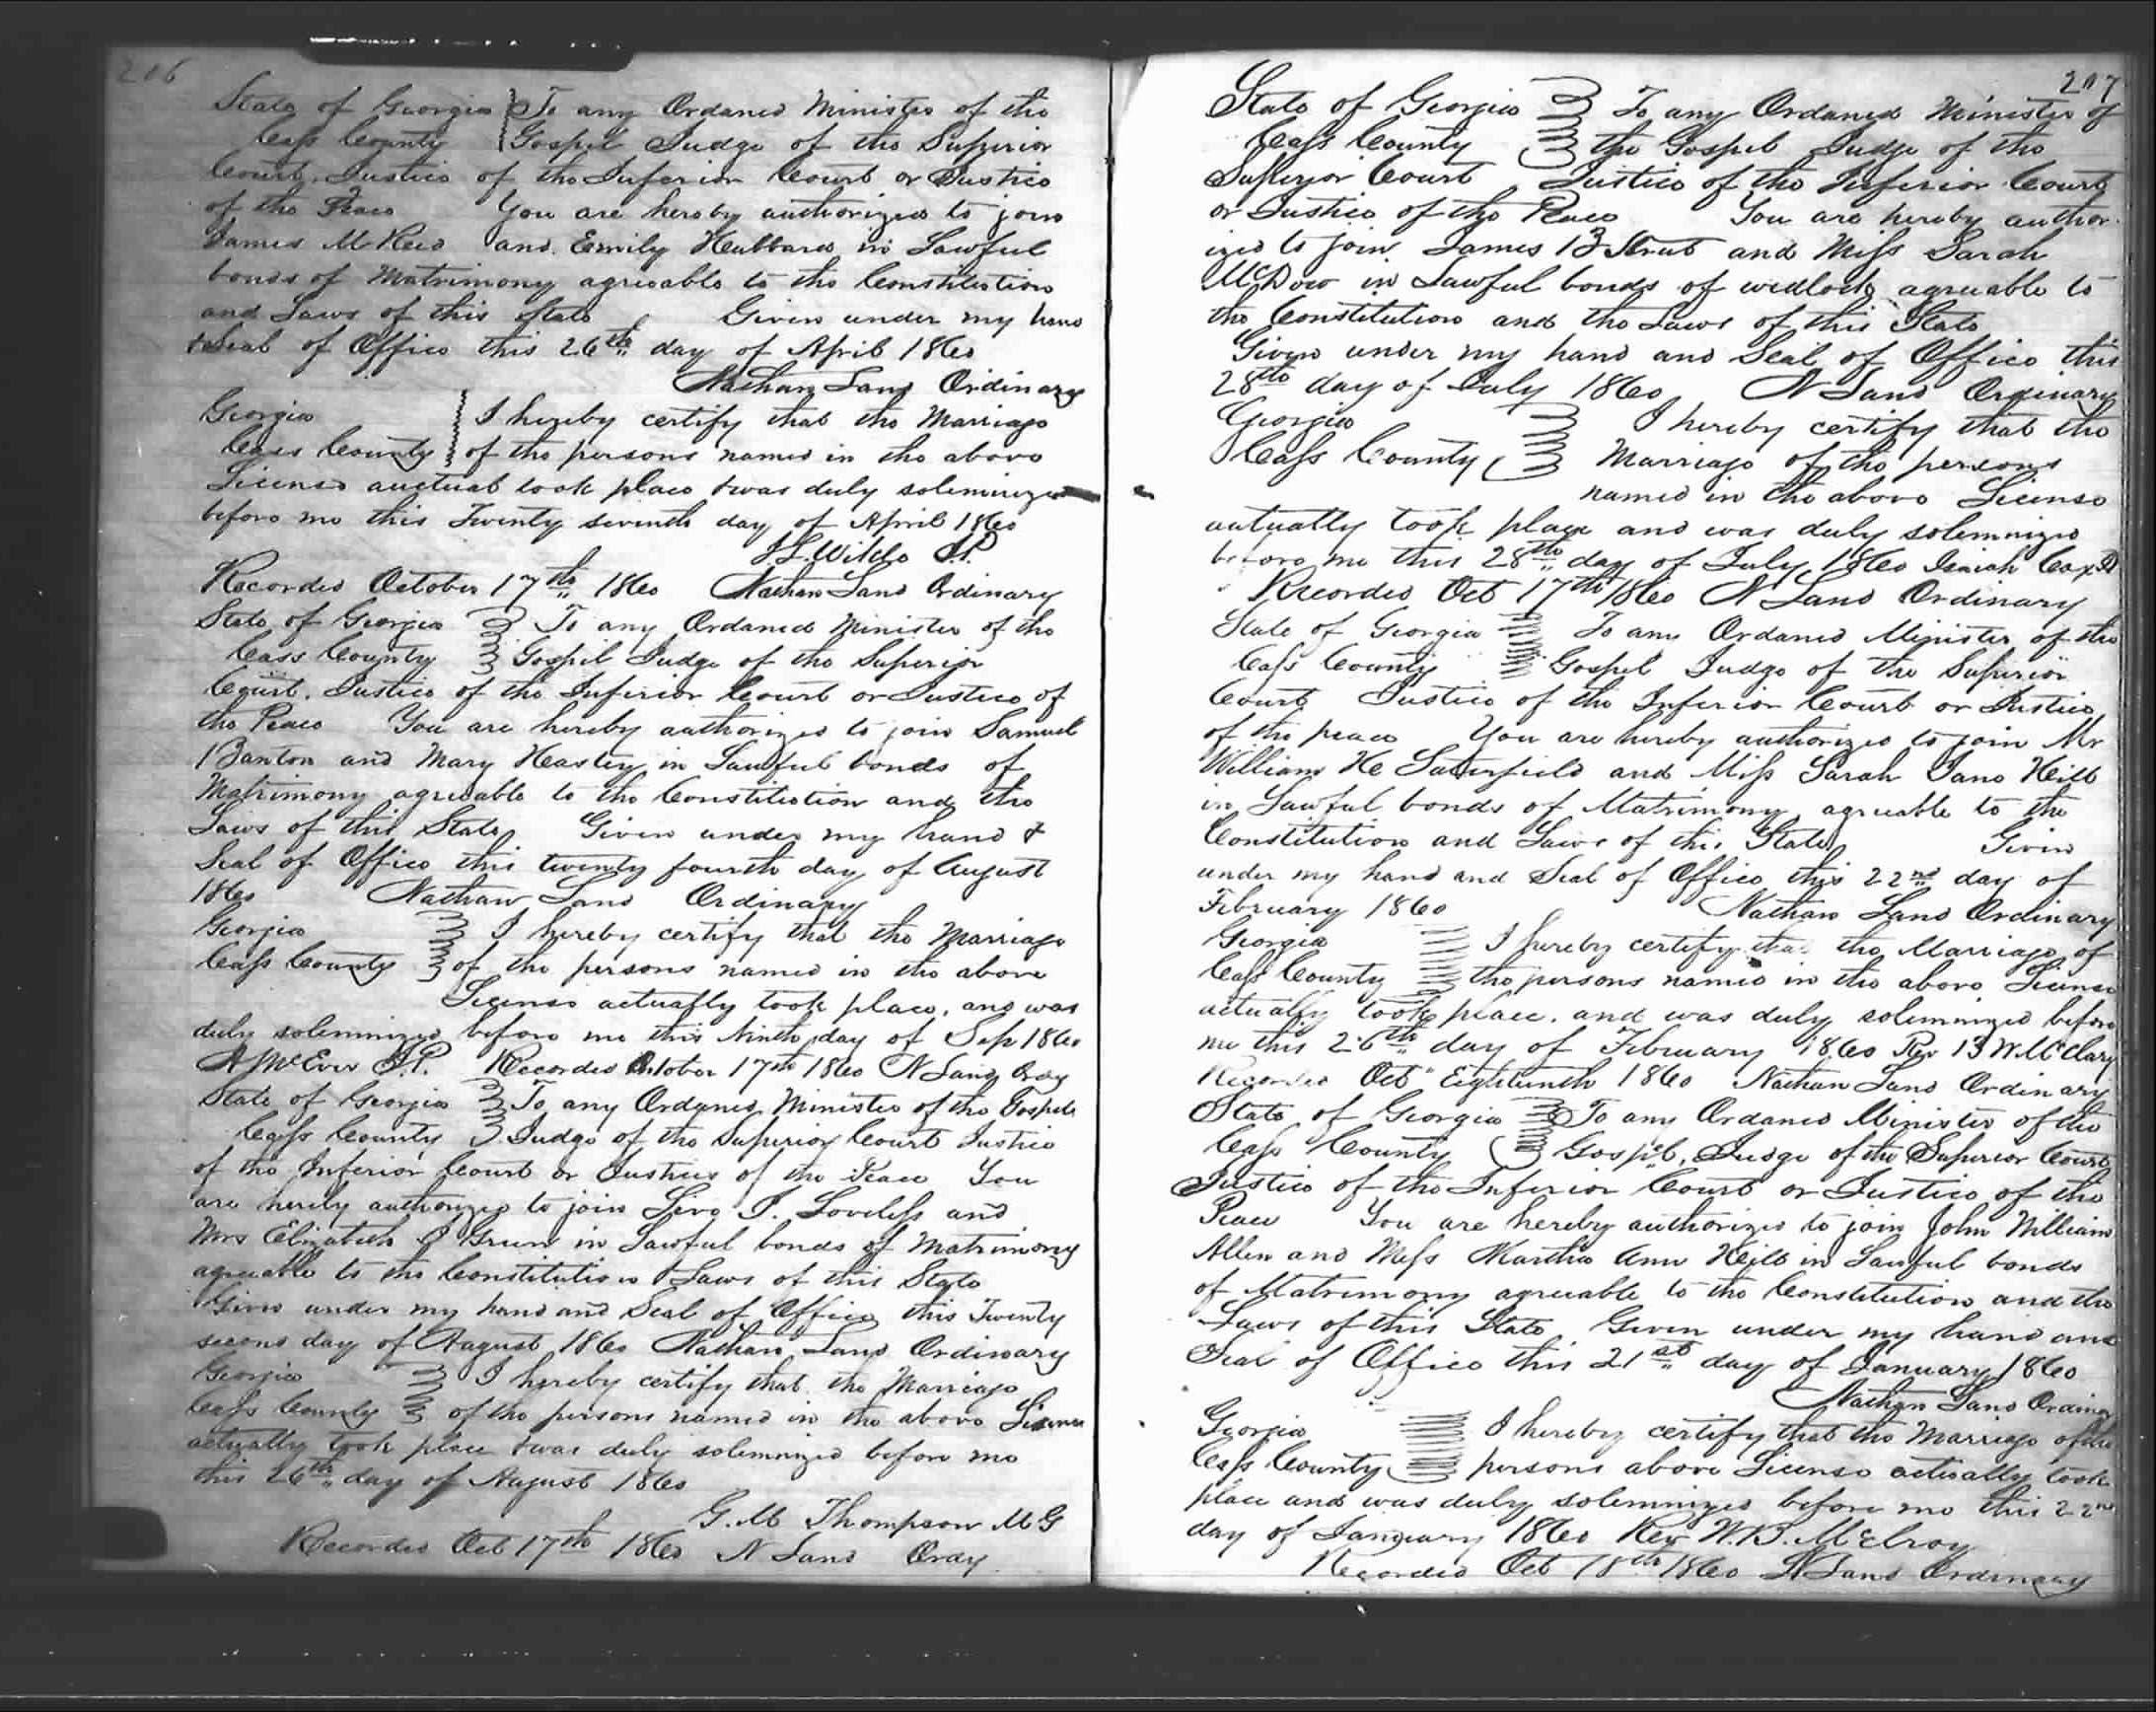 206
State of Georgia To any Ordaned Minister of the
Cass County Gospel Judge of the Superior
Court, Justice of the Inferior Court or Justice
of the Peace You are hereby authorized to join
James M Reed and Emily Hubbard in Lawful
bonds of Matrimony agreeable to the Constitution
and Laws of this State Given under my hand
& Seal of Office this 26th day of April 1860
Nathan Land Ordinary
Georgia I hereby certify that the Marriage
Cass County of the persons named in the above
License auctual took place & was duly solemnized
before me this Twenty seventh day of April 1860
J.P.
Recorded October 17th 1860 Nathan Land Ordinary
State of Georgia To any Ordaned Minister of the
Cass County Gospel Judge of the Superior
Court, Justice of the Inferior Court or Justice of
the Peace You are hereby authorized to join Samuel
Banton and Mary Heasley in Lawful bonds of
Matrimony agreeable to the Constitution and the
Laws of this State Given under my hand &
Seal of Office this twenty fourth day of August
1860 Nathan Land Ordinary
Georgia I hereby certify that the Marriage
Cass County of the persons named in the above
License actually took place, and was
duly solemnized before me this Ninth day of Sep 1860
A McEver J.P. Recorded October 17th 1860 N Land Ordy
State of Georgia To any Ordaned Minister of the Gospel
Cass County Judge of the Superior Court Justice
of the Inferior Court or Justice of the Peace You
are hereby authorized to join J. Loveless and
Mrs Elizabeth J Green in Lawful bonds of Matrimony
agreeable to the Constitution & Laws of this State
Given under my hand and Seal of Office this Twenty
second day of August 1860 Nathan Land Ordinary
Georgia I hereby certify that the Marriage
Cass County of the persons named in the above License
actually took place & was duly solemnized before me
this 26th day of August 1860
G. M Thompson M G
Recorded Oct 17th 1860 N Land Ordy
207
State of Georgia To any Ordaned Minister of
Cass County the Gospel Judge of the
Superior Court Justice of the Inferior Court
or Justice of the Peace You are hereby author
ized to join James B Strut and Miss Sarah
McDow in Lawful bonds of wedlock agreeable to
the Constitution and the Laws of this State
Given under my hand and Seal of Office this
28th day of July 1860 N Land Ordinary
Georgia I hereby certify that the
Cass County Marriage of the persons
named in the above License
actually took place and was duly solemnized
before me this 28th day of July 1860 Isaiah
Recorded Oct 17th 1860 N Land Ordinary
State of Georgia To any Ordaned Minister of the
Cass County Gospel Judge of the Superior
Court Justice of the Inferior Court or Justice
of the peace You are hereby authorized to join Mr
William H Satterfield and Miss Sarah Jane Hill
in Lawful bonds of Matrimony agreeable to the
Constitution and Laws of this State Given
under my hand and Seal of Office this 22nd day of
February 1860 Nathan Land Ordinary
Georgia I hereby certify that the Marriage of
Cass County the persons named in the above License
actually took place, and was duly solemnized before
me this 26th day of February 1860 Rev B W. McClary
Recorded Oct Eighteenth 1860 Nathan Land Ordinary
State of Georgia To any Ordaned Minister of the
Cass County Gospel, Judge of the Superior Court
Justice of the Inferior Court or Justice of the
Peace You are hereby authorized to join John William
Allen and Miss Martha Ann Hill in Lawful bonds
of Matrimony agreeable to the Constitution and the
Laws of this State Given under my hand and
Seal of Office this 21st day of January 1860
Nathan Land Ordinary
Georgia I hereby certify that the Marriage of the
Cass County persons above License actually took
place and was duly solemnized before me this 22nd
day of January 1860 Rev W. B. McElroy
Recorded Oct 18th 1860 N Land Ordinary